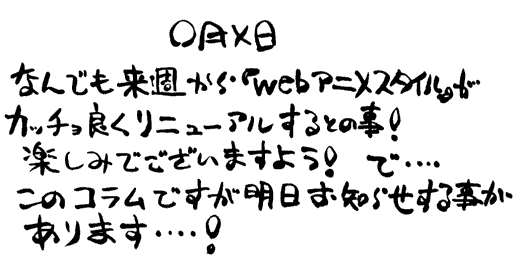 〇月×日
なんでも来週から『webアニメスタイル』が
カッチョ良くリニューアルするとの事!
楽しみでございますよう! で‥‥
このコラムですが明日お知らせする事が
あります‥‥!